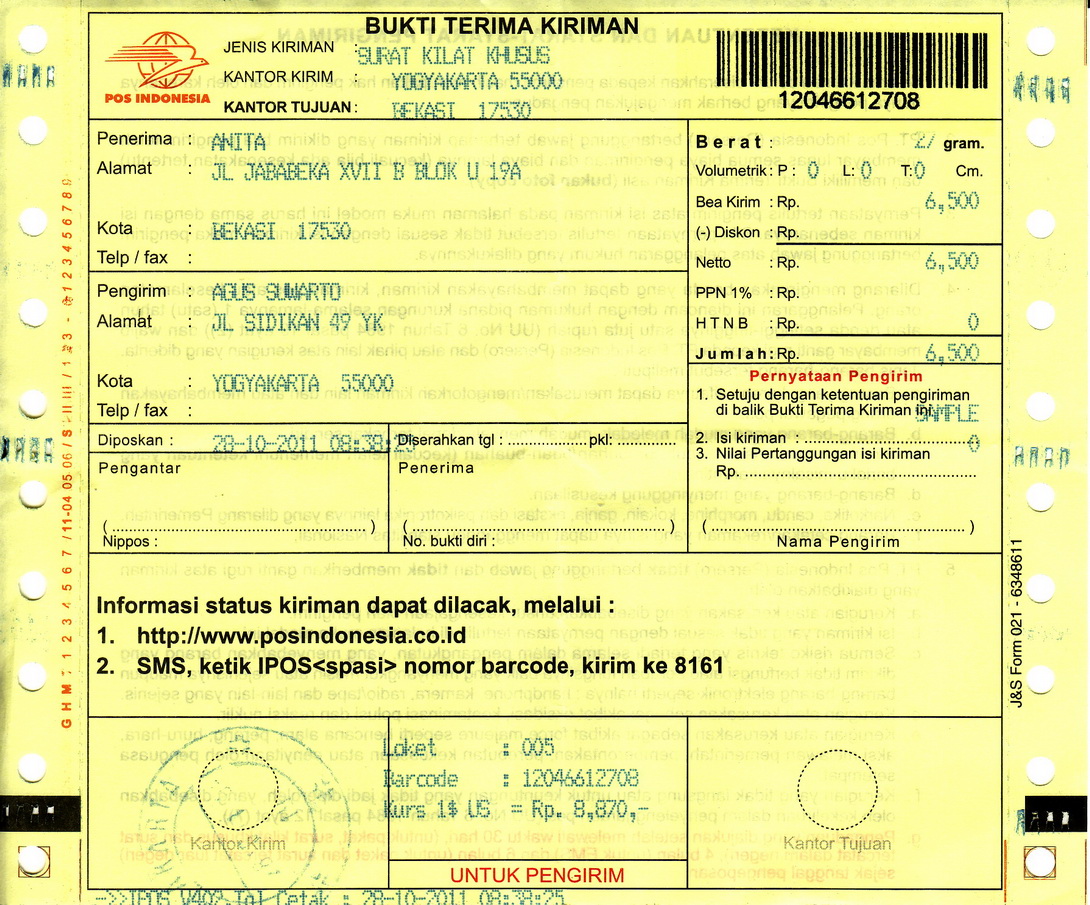 BUKTI TERIMA KIRIMAN
POS INDONESIA
JENIS KIRIMAN : SURAT KILAT KHUSUS
KANTOR KIRIM : YOGYAKARTA 55000
KANTOR TUJUAN : BEKASI 17530
12046612708
Penerima : ANITA
Alamat : JL JABABEKA XVII B BLOK U 19A
Kota : BEKASI 17530
Telp / fax :
Pengirim : AGUS SUWARTO
Alamat : JL SIDIKAN 49 YK
Kota : YOGYAKARTA 55000
Telp / fax :
Berat : 27 gram.
Volumetrik : P : 0 L : 0 T : 0 Cm.
Bea Kirim : Rp. 6,500
(-) Diskon : Rp.
Netto : Rp. 6,500
PPN 1% : Rp.
H T N B : Rp. 0
Jumlah : Rp. 6,500
Pernyataan Pengirim
1. Setuju dengan ketentuan pengiriman
di balik Bukti Terima Kiriman ini. SAMPLE
2. Isi kiriman : .................................... 0
3. Nilai Pertanggungan isi kiriman
Rp. .................................................
Diposkan : 28-10-2011 08:38:25
Diserahkan tgl : .............. pkl: ...........
Pengantar
Penerima
(..................................................)
(..................................................)
(..................................................)
Nippos :
No. bukti diri :
Nama Pengirim
Informasi status kiriman dapat dilacak, melalui :
1. http://www.posindonesia.co.id
2. SMS, ketik IPOS<spasi> nomor barcode, kirim ke 8161
Loket : 005
Barcode : 12046612708
Kurs 1$ US = Rp. 8,870,-
Kantor Kirim
Kantor Tujuan
UNTUK PENGIRIM
->>IPOS V402 Tgl Cetak : 28-10-2011 08:38:25
J&S Form 021 - 6348611